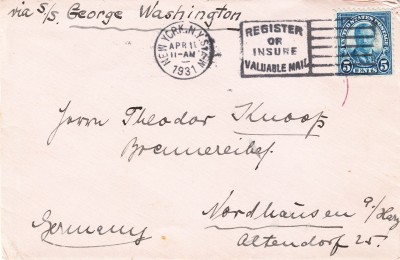 via S/S. George Washington
NEW YORK, N.Y. STA.
APR 11
11-AM
1931
REGISTER
OR
INSURE
VALUABLE MAIL
UNITED STATES POSTAGE
5 CENTS 5
Herrn Theodor Knoop
Brennereibes.
Nordhausen a/Harz
Altendorf 25.
Germany